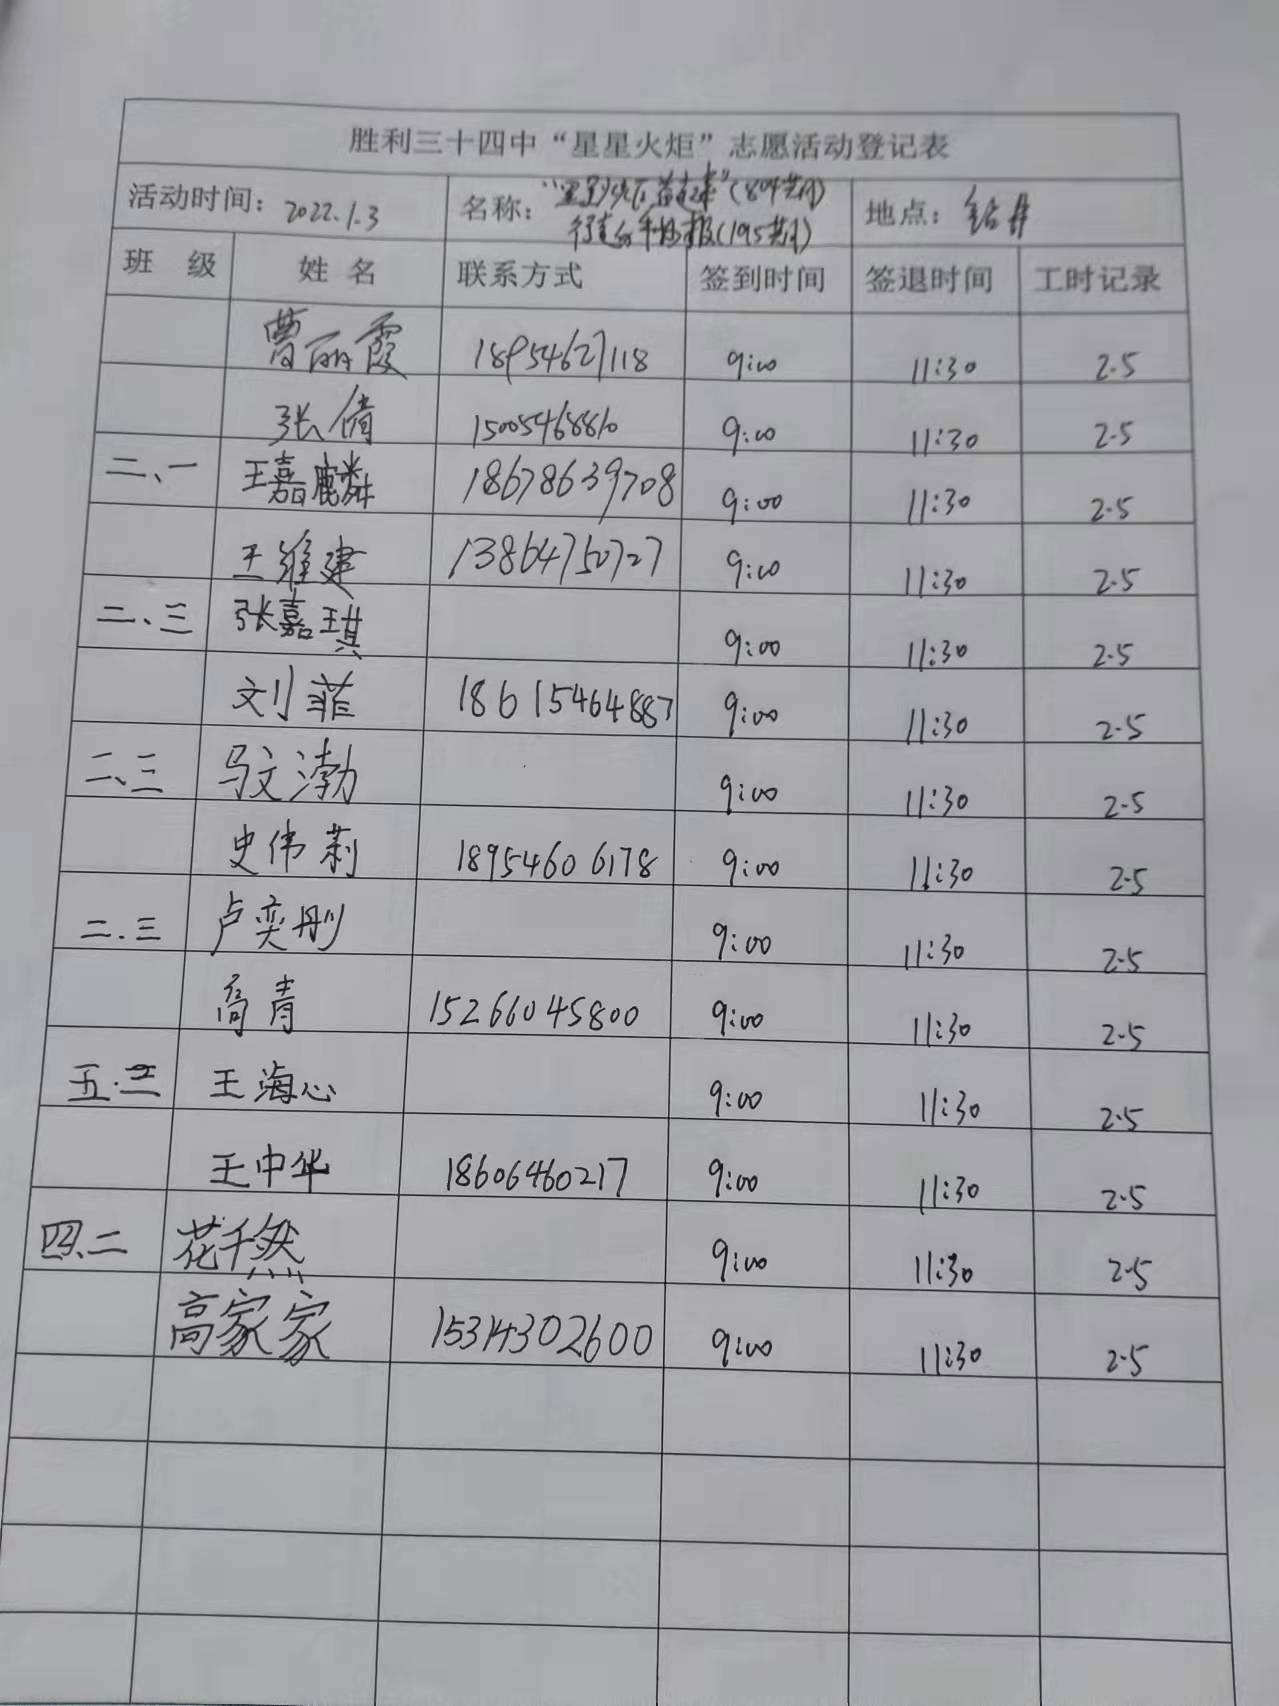 胜利三十四中“星星火炬”志愿活动登记表
活动时间: 2022.1.3 名称: “星星火炬益起来”(804期) 地点: 钻井
手抄报(195期)
班 级 姓 名 联系方式 签到时间 签退时间 工时记录
曹丽霞 18954627118 9:00 11:30 2.5
张倩 15005468810 9:00 11:30 2.5
二、一 王嘉麟 18678639708 9:00 11:30 2.5
王维建 13864750727 9:00 11:30 2.5
二、三 张嘉琪 9:00 11:30 2.5
刘菲 18615464887 9:00 11:30 2.5
二、三 马文渤 9:00 11:30 2.5
史伟莉 18954606178 9:00 11:30 2.5
二.三 卢奕彤 9:00 11:30 2.5
高青 15266045800 9:00 11:30 2.5
五.三 王海心 9:00 11:30 2.5
王中华 18606460217 9:00 11:30 2.5
四、二 花千然 9:00 11:30 2.5
高家家 15314302600 9:00 11:30 2.5